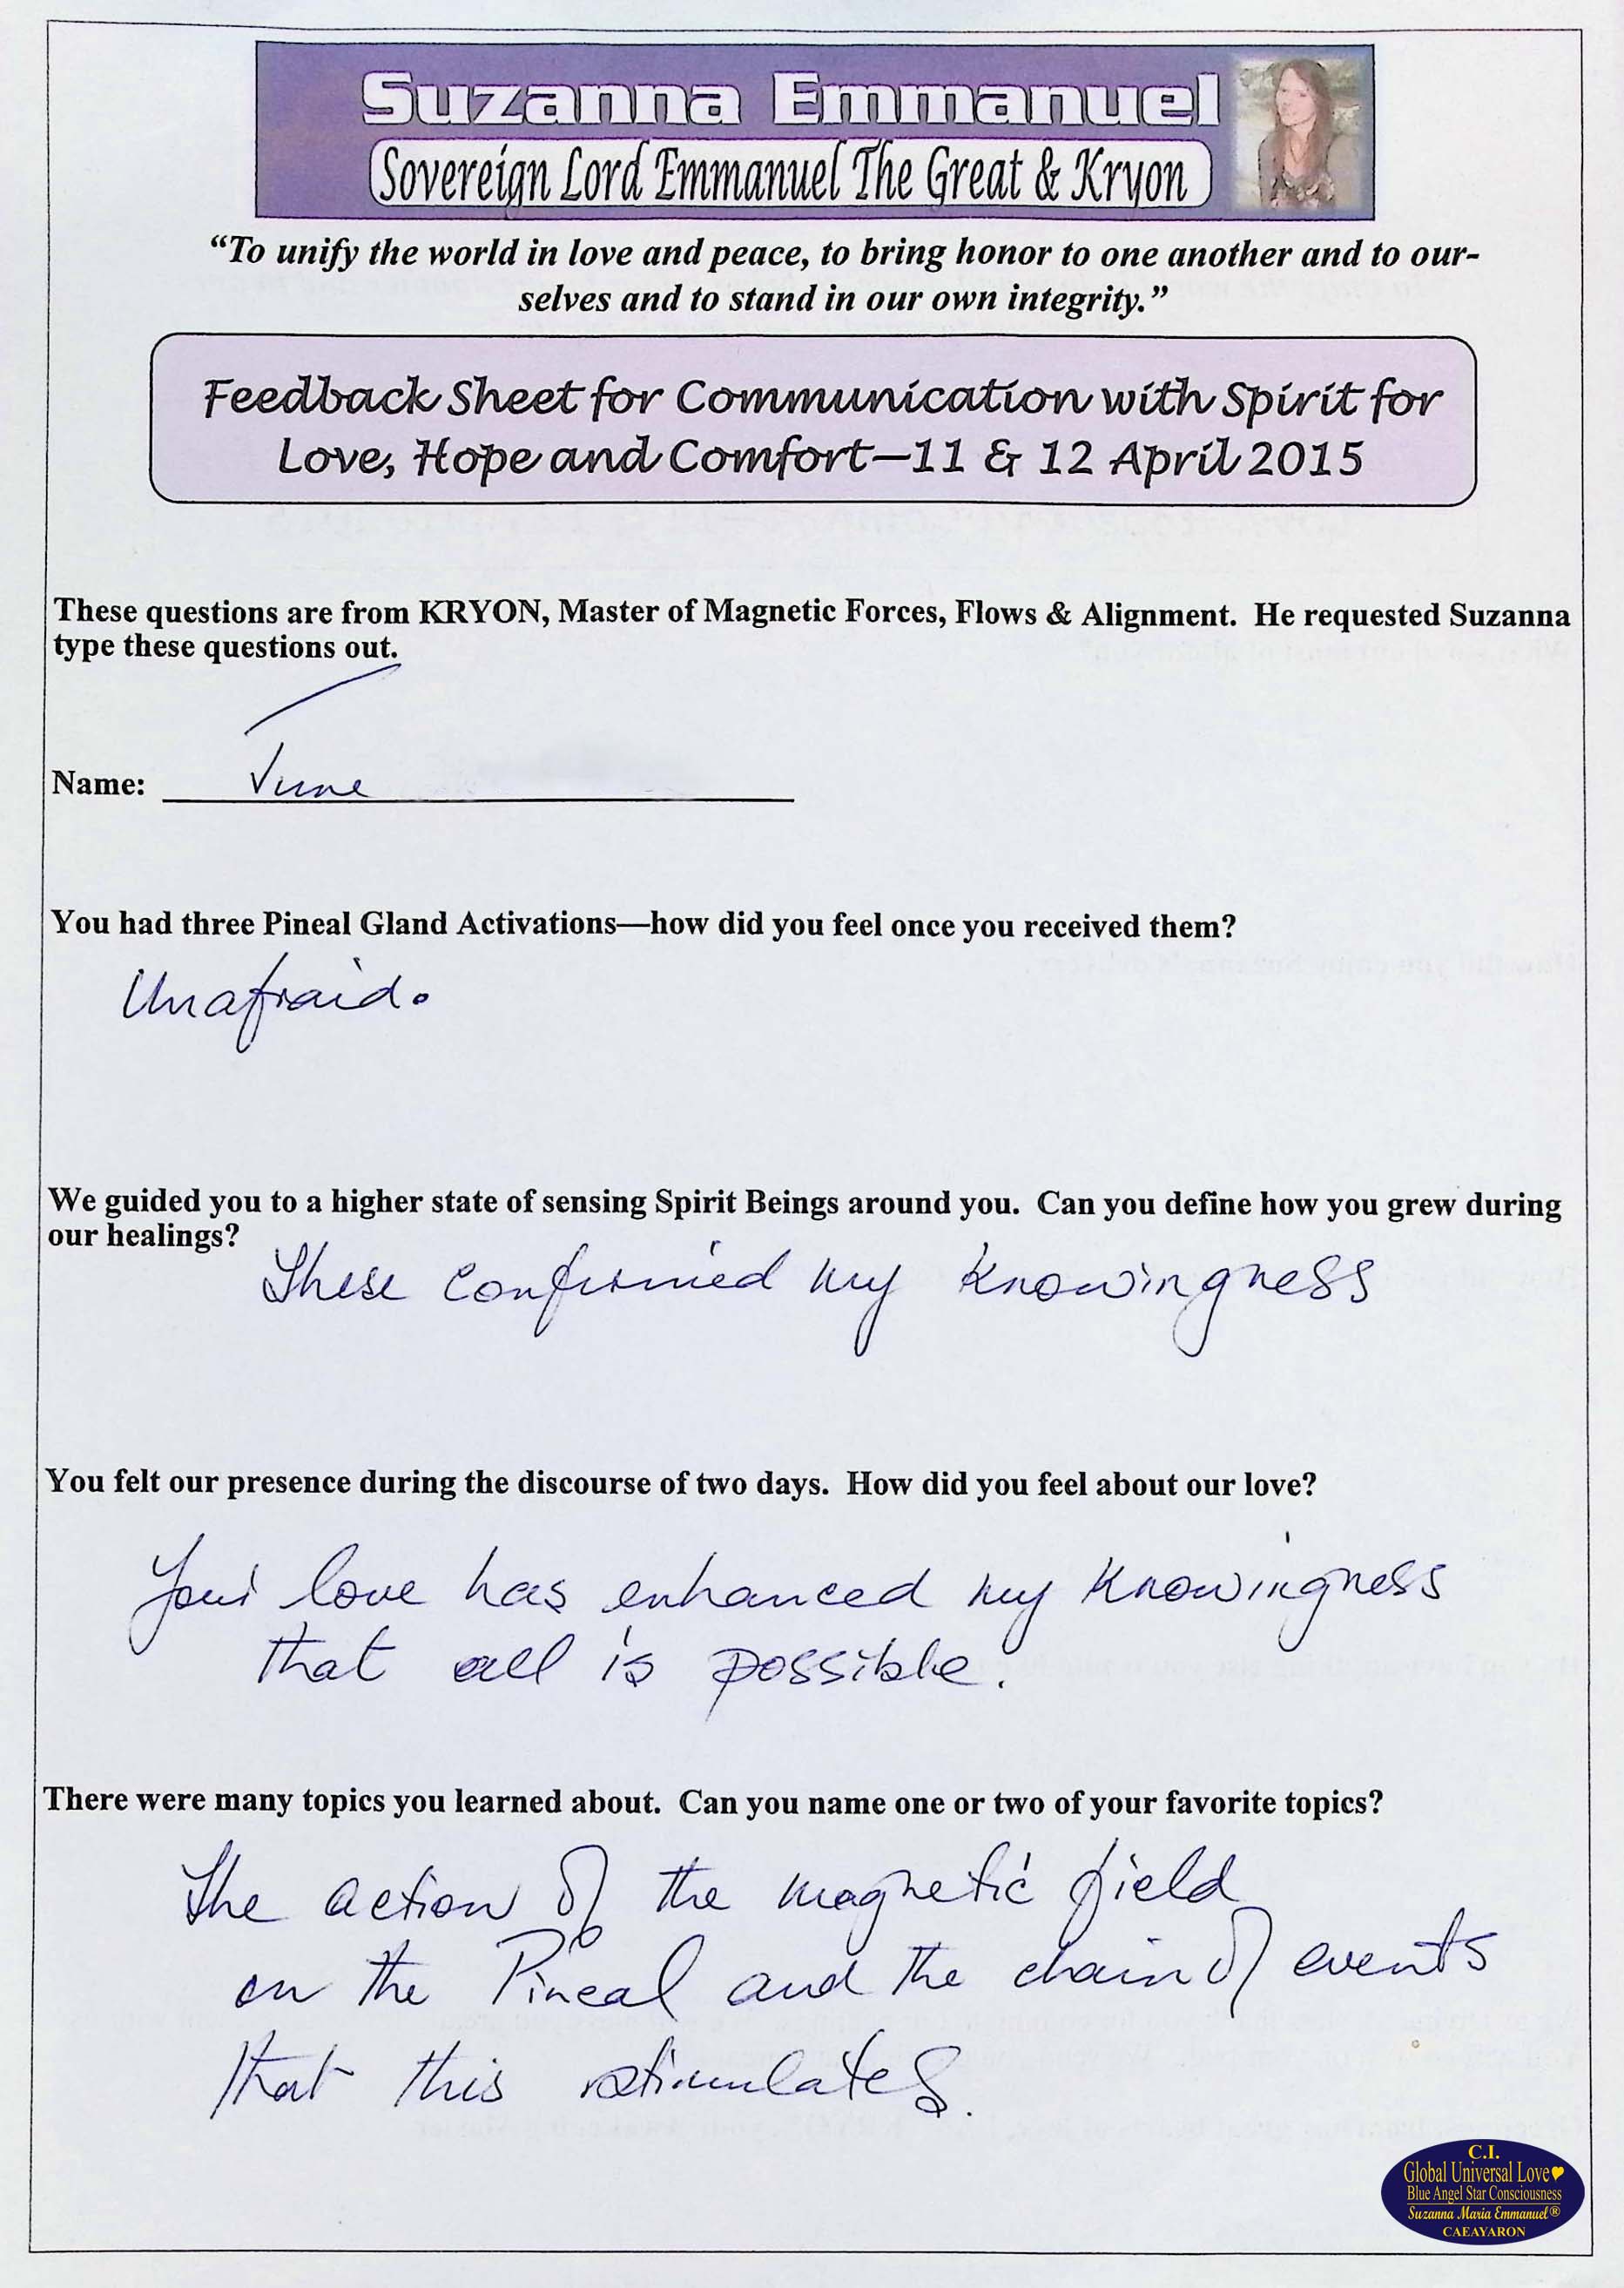 Suzanna Emmanuel
Sovereign Lord Emmanuel The Great & Kryon
“To unify the world in love and peace, to bring honor to one another and to our-
selves and to stand in our own integrity.”
Feedback Sheet for Communication with Spirit for
Love, Hope and Comfort—11 & 12 April 2015
These questions are from KRYON, Master of Magnetic Forces, Flows & Alignment. He requested Suzanna
type these questions out.
Name: June
You had three Pineal Gland Activations—how did you feel once you received them?
Unafraid.
We guided you to a higher state of sensing Spirit Beings around you. Can you define how you grew during
our healings?
These confirmed my knowingness
You felt our presence during the discourse of two days. How did you feel about our love?
Your love has enhanced my knowingness
that all is possible.
There were many topics you learned about. Can you name one or two of your favorite topics?
The action of the magnetic field
on the Pineal and the chain of events
that this stimulates.
C.I.
Global Universal Love
Blue Angel Star Consciousness
Suzanna Maria Emmanuel®
CAEAYARON